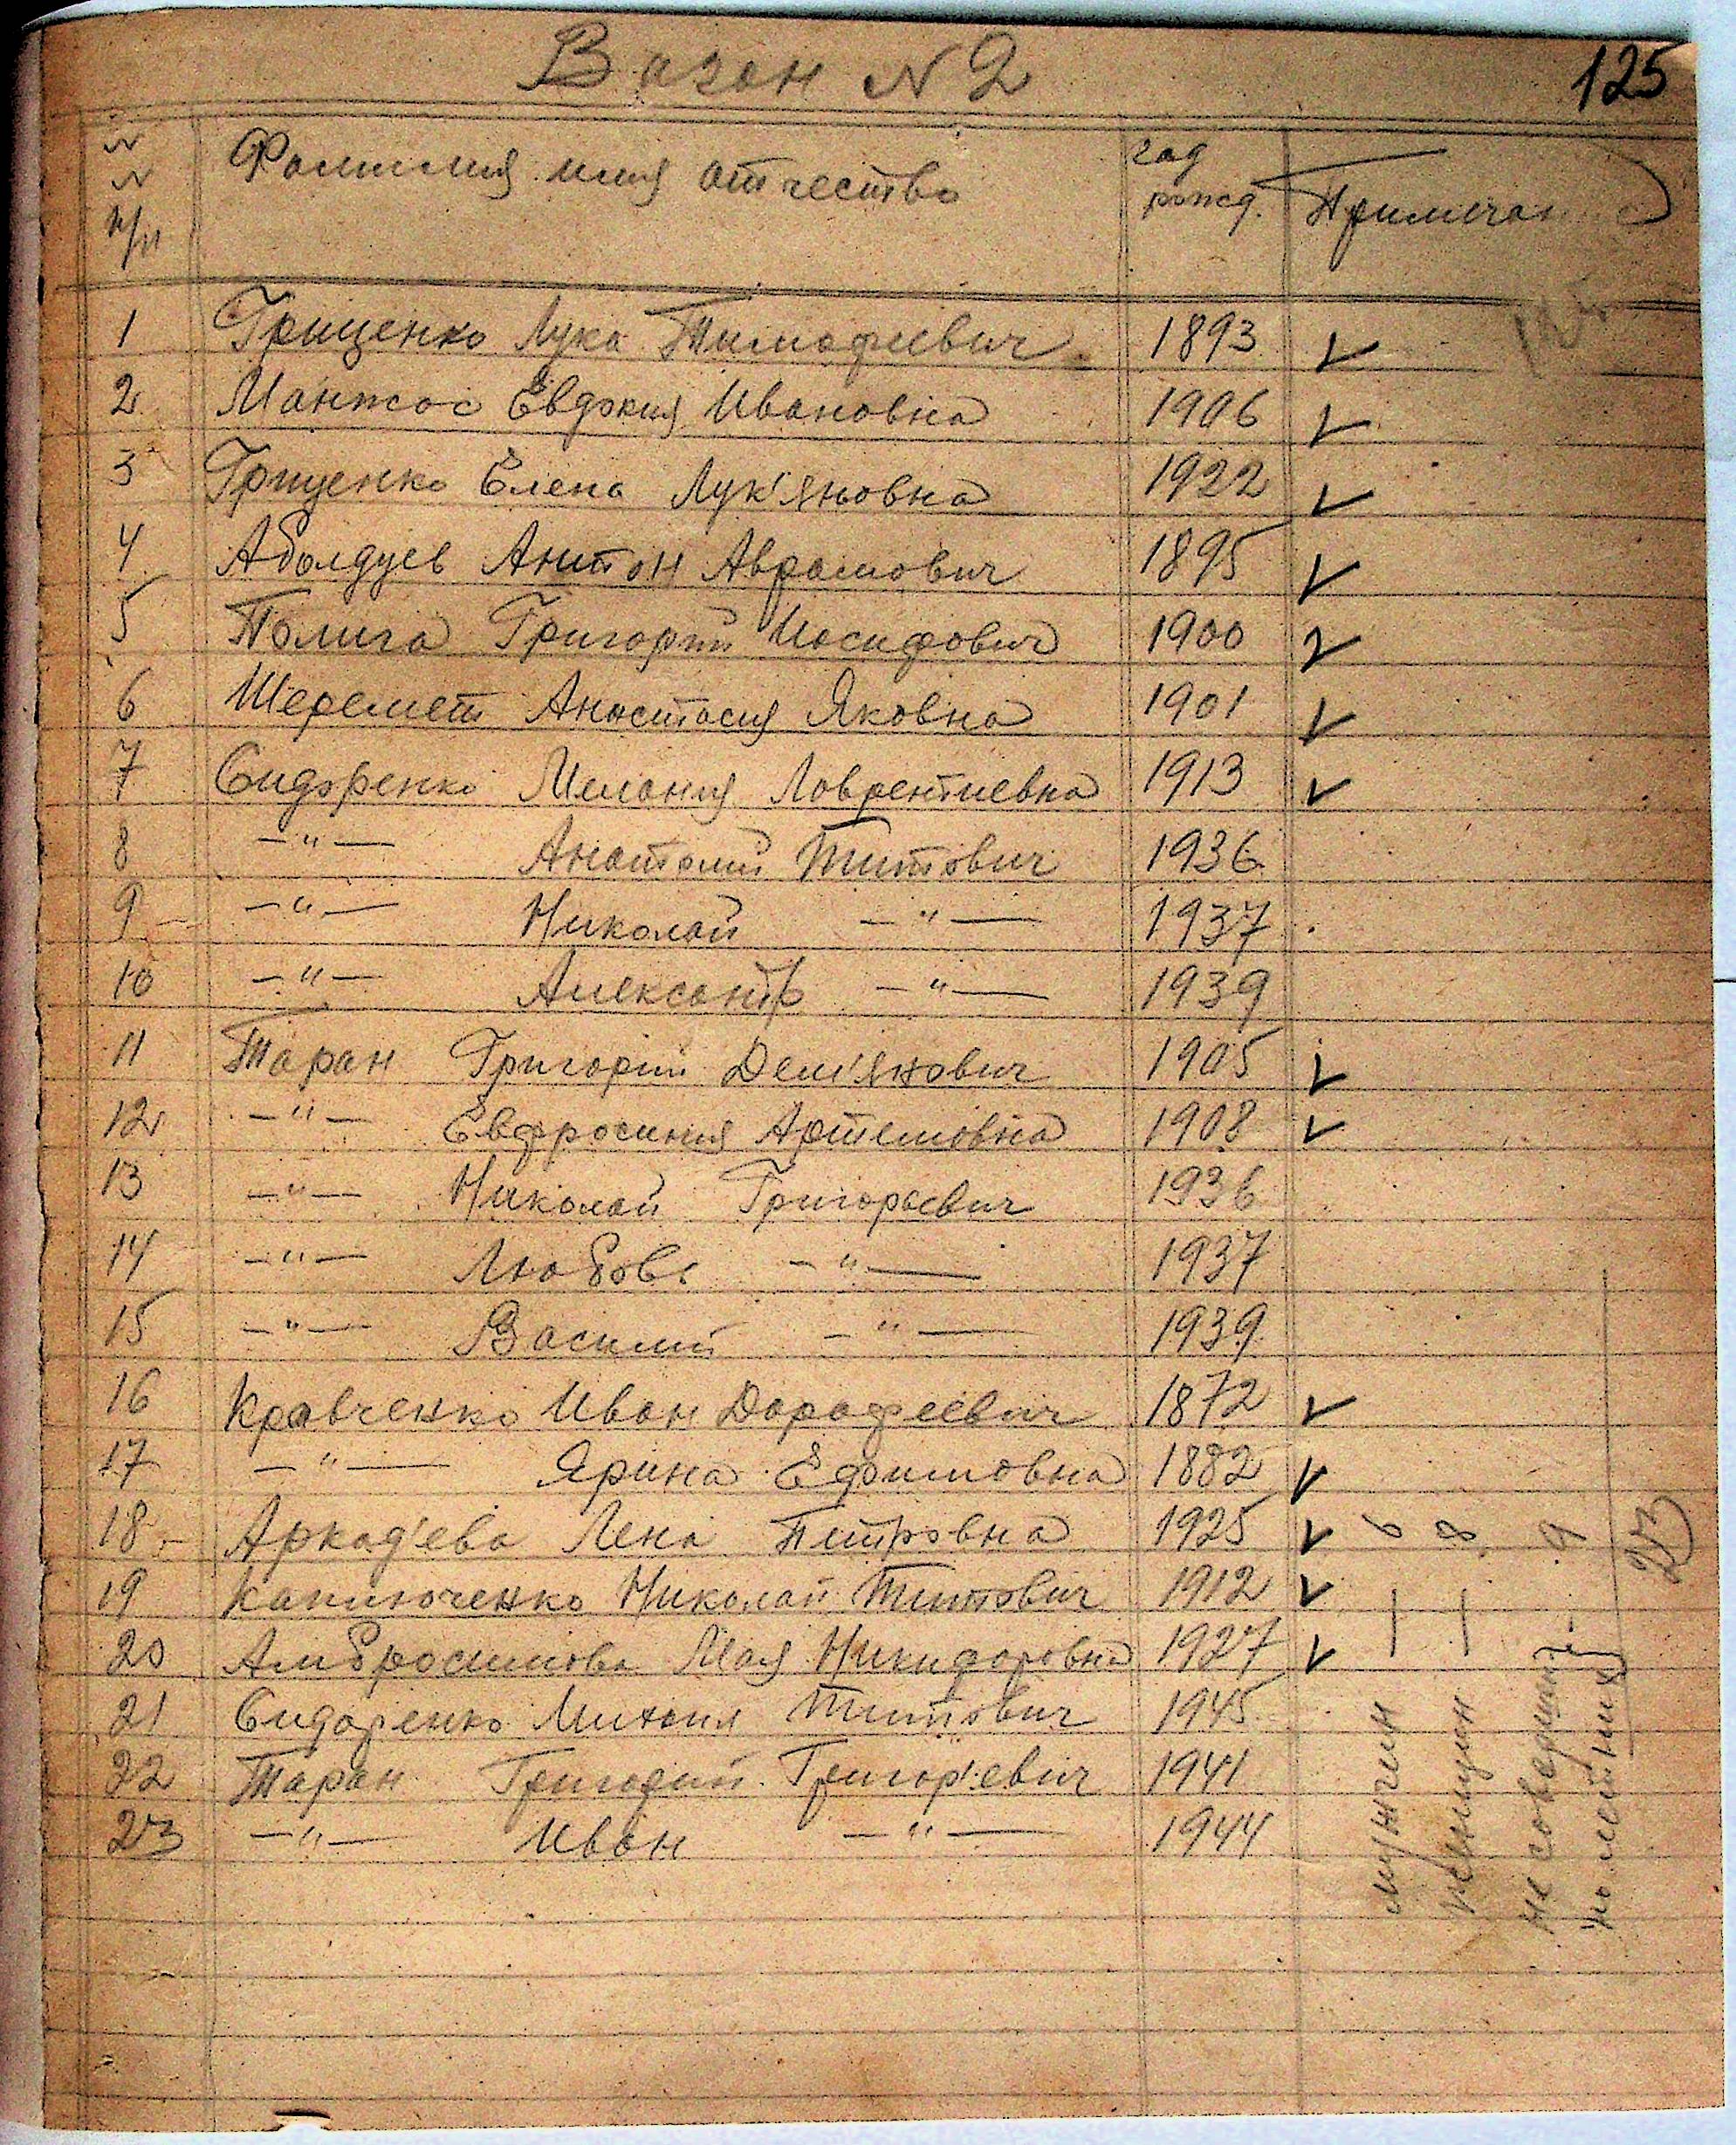 Вагон N 2
125
N N п/п Фамилия имя отчество год рожд. Примечание
1 Грищенко Лука Тимофеевич 1893 ✓
2 Манжос Евдокия Ивановна 1906 ✓
3 Грищенко Елена Лук'яновна 1922 ✓
4 Аболдуев Антон Аврамович 1895 ✓
5 Полига Григорий Иосифович 1900 ✓
6 Шеремет Анастасия Яковна 1901 ✓
7 Сидоренко Мелания Лаврентиевна 1913 ✓
8 —"— Анатолий Титович 1936
9 —"— Николай —"— 1937
10 —"— Александр —"— 1939
11 Таран Григорий Дем'янович 1905 ✓
12 —"— Евфросиния Артемовна 1908 ✓
13 —"— Николай Григорьевич 1936
14 —"— Любовь —"— 1937
15 —"— Василий —"— 1939
16 Кравченко Иван Дорофеевич 1872 ✓
17 —"— Ярина Ефимовна 1882 ✓
18 Аркад'ева Лена Петровна 1925 ✓
19 Каплюченко Николай Титович 1912 ✓
20 Амбросимова Мая Никифоровна 1927 ✓
21 Сидоренко Михаил Титович 1945
22 Таран Григорий Григор'евич 1941
23 —"— Иван —"— 1944
мужчин — 6
женщин — 8
не совершенно летних 9
23